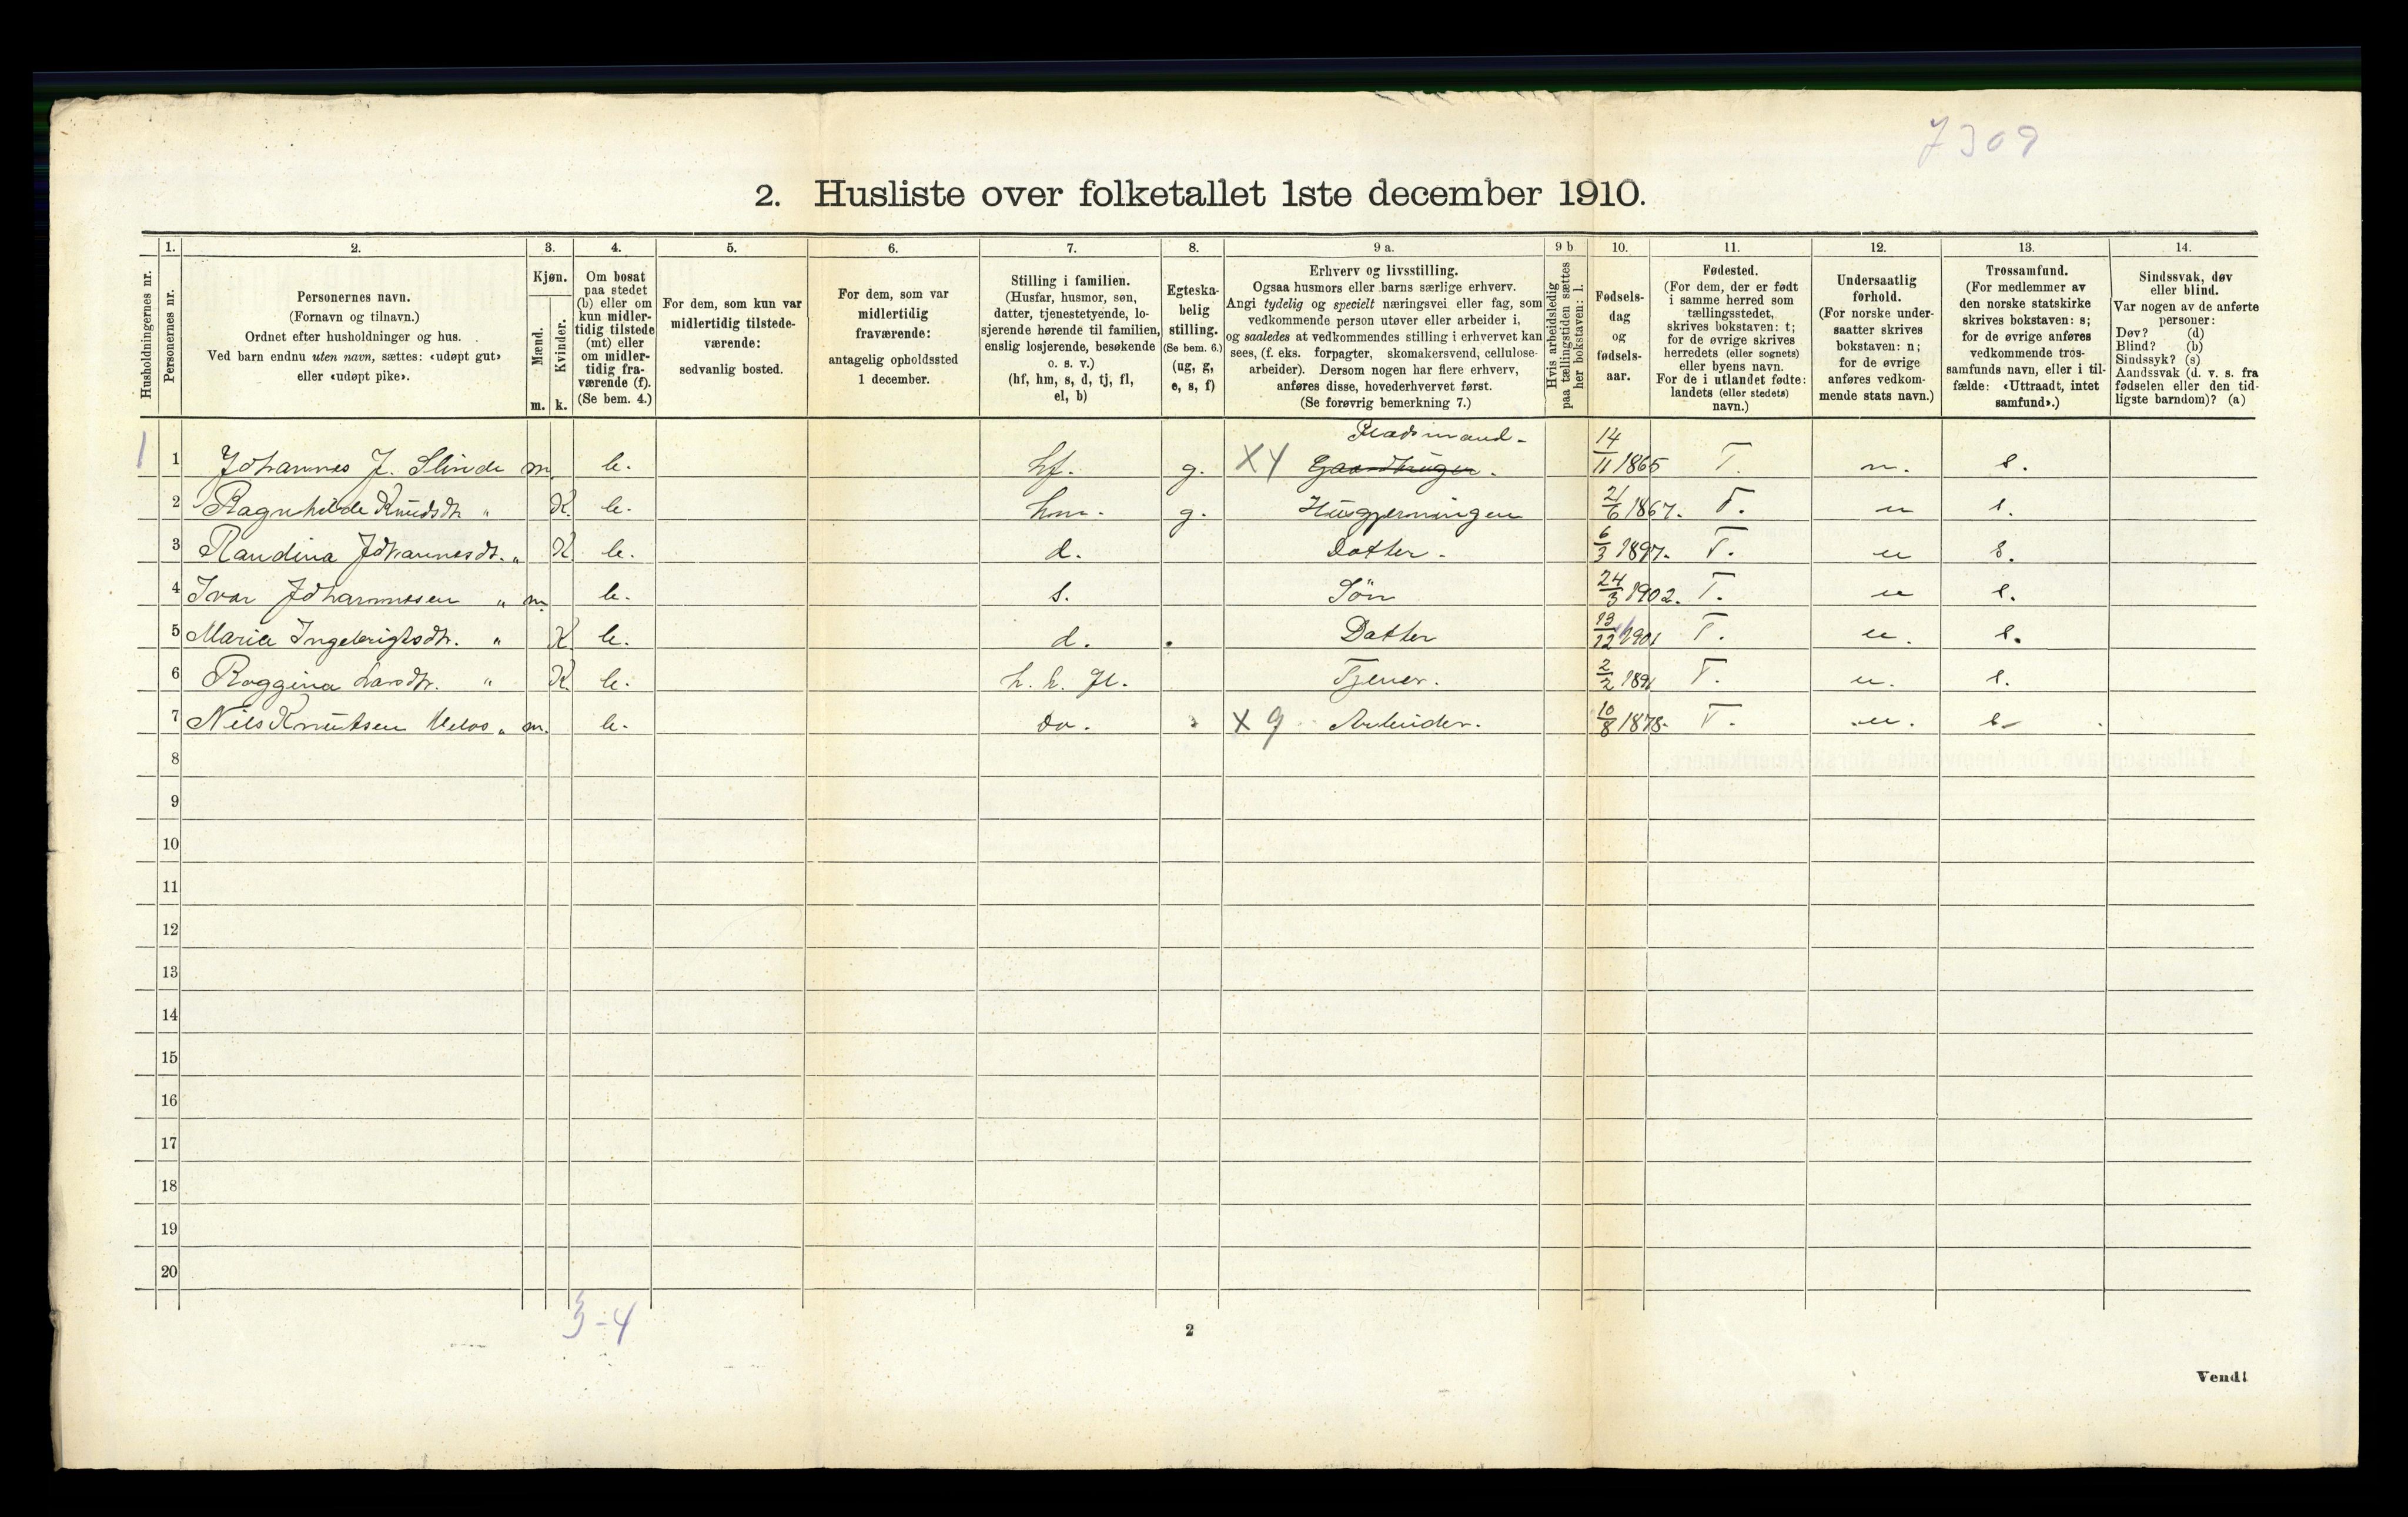 7309
2. Husliste over folketallet 1ste december 1910.
Husholdningernes nr.
1.
Personernes nr.
2.
Personernes navn.
(Fornavn og tilnavn.)
Ordnet efter husholdninger og hus.
Ved barn endnu uten navn, sættes: «udøpt gut»
eller «udøpt pike».
3.
Kjøn.
Mænd.
Kvinder.
m. k.
4.
Om bosat
paa stedet
(b) eller om
kun midler-
tidig tilstede
(mt) eller
om midler-
tidig fra-
værende (f).
(Se bem. 4.)
5.
For dem, som kun var
midlertidig tilstede-
værende:
sedvanlig bosted.
6.
For dem, som var
midlertidig
fraværende:
antagelig opholdssted
1 december.
7.
Stilling i familien.
(Husfar, husmor, søn,
datter, tjenestetyende, lo-
sjerende hørende til familien,
enslig losjerende, besøkende
o. s. v.)
(hf, hm, s, d, tj, fl,
el, b)
8.
Egteska-
belig
stilling.
(Se bem. 6.)
(ug, g,
e, s, f)
9 a.
Erhverv og livsstilling.
Ogsaa husmors eller barns særlige erhverv.
Angi tydelig og specielt næringsvei eller fag, som
vedkommende person utøver eller arbeider i,
og saaledes at vedkommendes stilling i erhvervet kan
sees, (f. eks. forpagter, skomakersvend, cellulose-
arbeider). Dersom nogen har flere erhverv,
anføres disse, hovederhvervet først.
(Se forøvrig bemerkning 7.)
9 b
Hvis arbeidsledig
paa tællingstiden sættes
her bokstaven: l.
10.
Fødsels-
dag
og
fødsels-
aar.
11.
Fødested.
(For dem, der er født
i samme herred som
tællingsstedet,
skrives bokstaven: t;
for de øvrige skrives
herredets (eller sognets)
eller byens navn.
For de i utlandet fødte:
landets (eller stedets)
navn.)
12.
Undersaatlig
forhold.
(For norske under-
saatter skrives
bokstaven: n;
for de øvrige
anføres vedkom-
mende stats navn.)
13.
Trossamfund.
(For medlemmer av
den norske statskirke
skrives bokstaven: s;
for de øvrige anføres
vedkommende tros-
samfunds navn, eller i til-
fælde: «Uttraadt, intet
samfund».)
14.
Sindssvak, døv
eller blind.
Var nogen av de anførte
personer:
Døv? (d)
Blind? (b)
Sindssyk? (s)
Aandssvak (d. v. s. fra
fødselen eller den tid-
ligste barndom)? (a)
Pladsmand-
1 1 Johannes J. Slinde m. b. hf. g. X4 Gaardbruger. 14/11 1865 T. n. s.
2 Ragnhilde Knudsdtr. " K b. hm. g. Husgjerningen 21/6 1867. T. n s.
3 Randina Johannesdt. " K b. d. Datter. 6/3 1897. T. n s.
4 Ivar Johannesen " m. b. s. Sön 24/3 1902. T. n s.
5 Marie Ingebrigtsdtr. " K b. d. Datter 13/12 1901 T. n. s.
6 Raggina Larsdtr. " K b. Tjener. 2/2 1891 T. n. s.
7 Nils Knutsen " m. b. do. X 9 Arbeider. 10/8 1878. T. n. s
8
9
10
11
12
13
14
15
16
17
18
19
20
3-4
2
Vend!